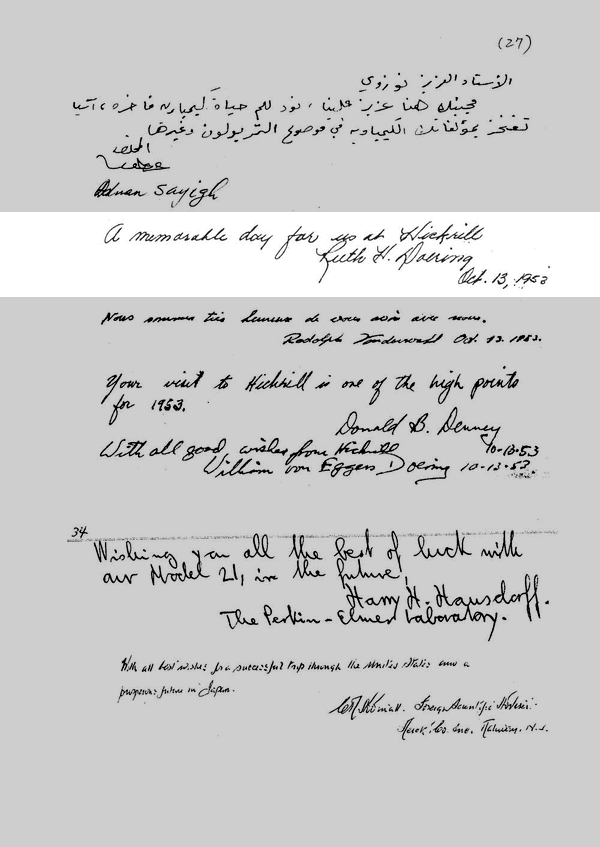 (27)
الأستاذ العزيز نوزوي
مجيئك هنا عزيز علينا ، نود لكم حياة كيمياوية فاخرة ، آسيا
تفتخر بمؤلفاتك الكيمياوية في موضوع التربولون وغيرها
المخلص
Adnan Sayigh
A memorable day for us at Hickrill
Ruth H. Doering
Oct. 13, 1953
Nous sommes très heureux de vous avoir avec nous.
Rodolphe Oct 13. 1953.
Your visit to Hickrill is one of the high points
for 1953.
Donald B. Denney
10-13-53
With all good wishes from Hickrill
William von Eggers Doering 10-13-53
34
Wishing you all the best of luck with
our Model 21, in the future,
Harry H. Hausdorff.
The Perkin-Elmer Laboratory.
With all best wishes for a successful trip through the United States and a
prosperous future in Japan.
Foreign Scientific
Merck & Co. Inc. Rahway, N.J.